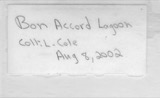 Bon Accord Lagoon
Coll: L. Cole
Aug 8, 2002